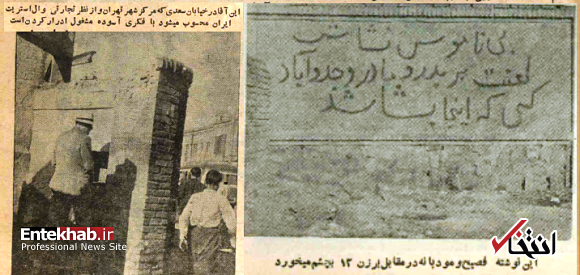 این آقا در خیابان سعدی که مرکز شهر تهران و از نظر تجارتی وال استریت
ایران محسوب میشود با فکری آسوده مشغول ادرار کردن است
بی ناموس نشاش
لعنت بر پدر و مادر و جد و آباد
کسی که اینجا بشاشد
این نوشته فصیح و مودبانه در مقابل برزن ۱۳ بچشم میخورد
Entekhab.ir
Professional News Site
انتخاب